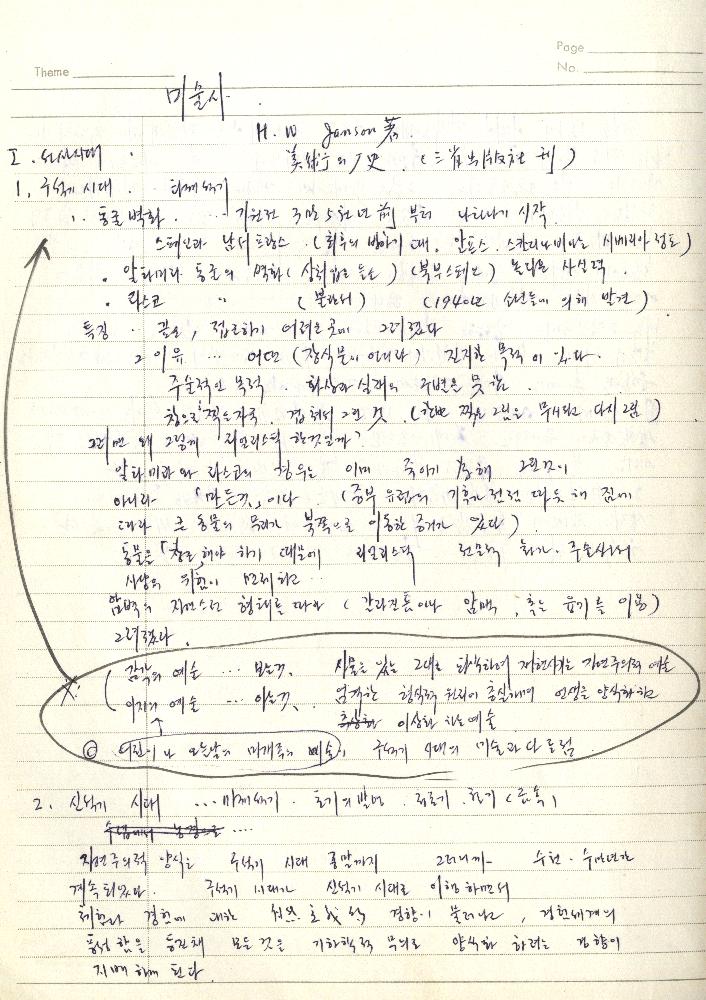 Page
Theme
No.
미술사.
H. W Janson 著.
美術의 歷史. (三省出版社 刊)
I. 선사시대.
1. 구석기 시대. 타제석기
1. 동굴벽화. ... 기원전 3만 5천년 前 부터 나타나기 시작.
스페인과 남서 프랑스. (최후의 빙하기 때. 알프스. 스칸디나비아는 시베리아 정도)
• 알타미라 동굴의 벽화 (상처입은 들소) (북부스페인) 놀라운 사실력.
• 라스코 〃 (불란서) (1940년 소년들에 의해 발견)
특징. 깊은, 접근하기 어려운 곳에 그려졌다
그 이유 ... 어떤 (장식물이 아니라) 진지한 목적이 있다.
주술적인 목적. 화상과 실재의 구별을 못함.
창으로 찍은자국. 겹쳐서 그린 것. (한번 찍은 그림을 무시하고 다시 그림)
그러면 왜 그렇게 리얼리스틱 한것일까?
알타미라와 라스코의 경우는 이미 죽이기 위해 그린것이
아니라 「만든것」이다. (중부 유럽의 기후가 점점 따뜻해 짐에
따라 큰 동물의 무리가 북쪽으로 이동한 증거가 있다).
동물을 「창조」해야 하기 때문에 리얼리스틱 전문적 화가. 주술사서
사냥의 위험이 면제하고 ...
암벽의 자연스런 형태를 따라 ( 갈라진틈이나 암맥, 혹은 융기를 이용)
그려졌다.
감각의 예술 ... 보는것. 사물을 있는 그대로 파악하며 재현시키는 자연주의적 예술
이지의 예술 ... 아는것. 엄격한 형식적 원리에 충실하며 인생을 양식화하고
이상화 하는 예술
ⓒ 어린이나 오늘날의 미개족의 예술, 구석기 시대의 미술과 다름
2. 신석기 시대 ... 마제석기. 토기의 발명.
자연주의적 양식은 구석기 시대 종말까지 그러니까 수천. 수만년간
계속되었다. 구석기 시대가 신석기 시대로 이행하면서
체험과 경험에 대한 경향이 물러나고, 경험세계의
풍성함을 등진채 모든 것은 기하학적 무늬로 양식화 하려는 경향이
지배하게 된다.